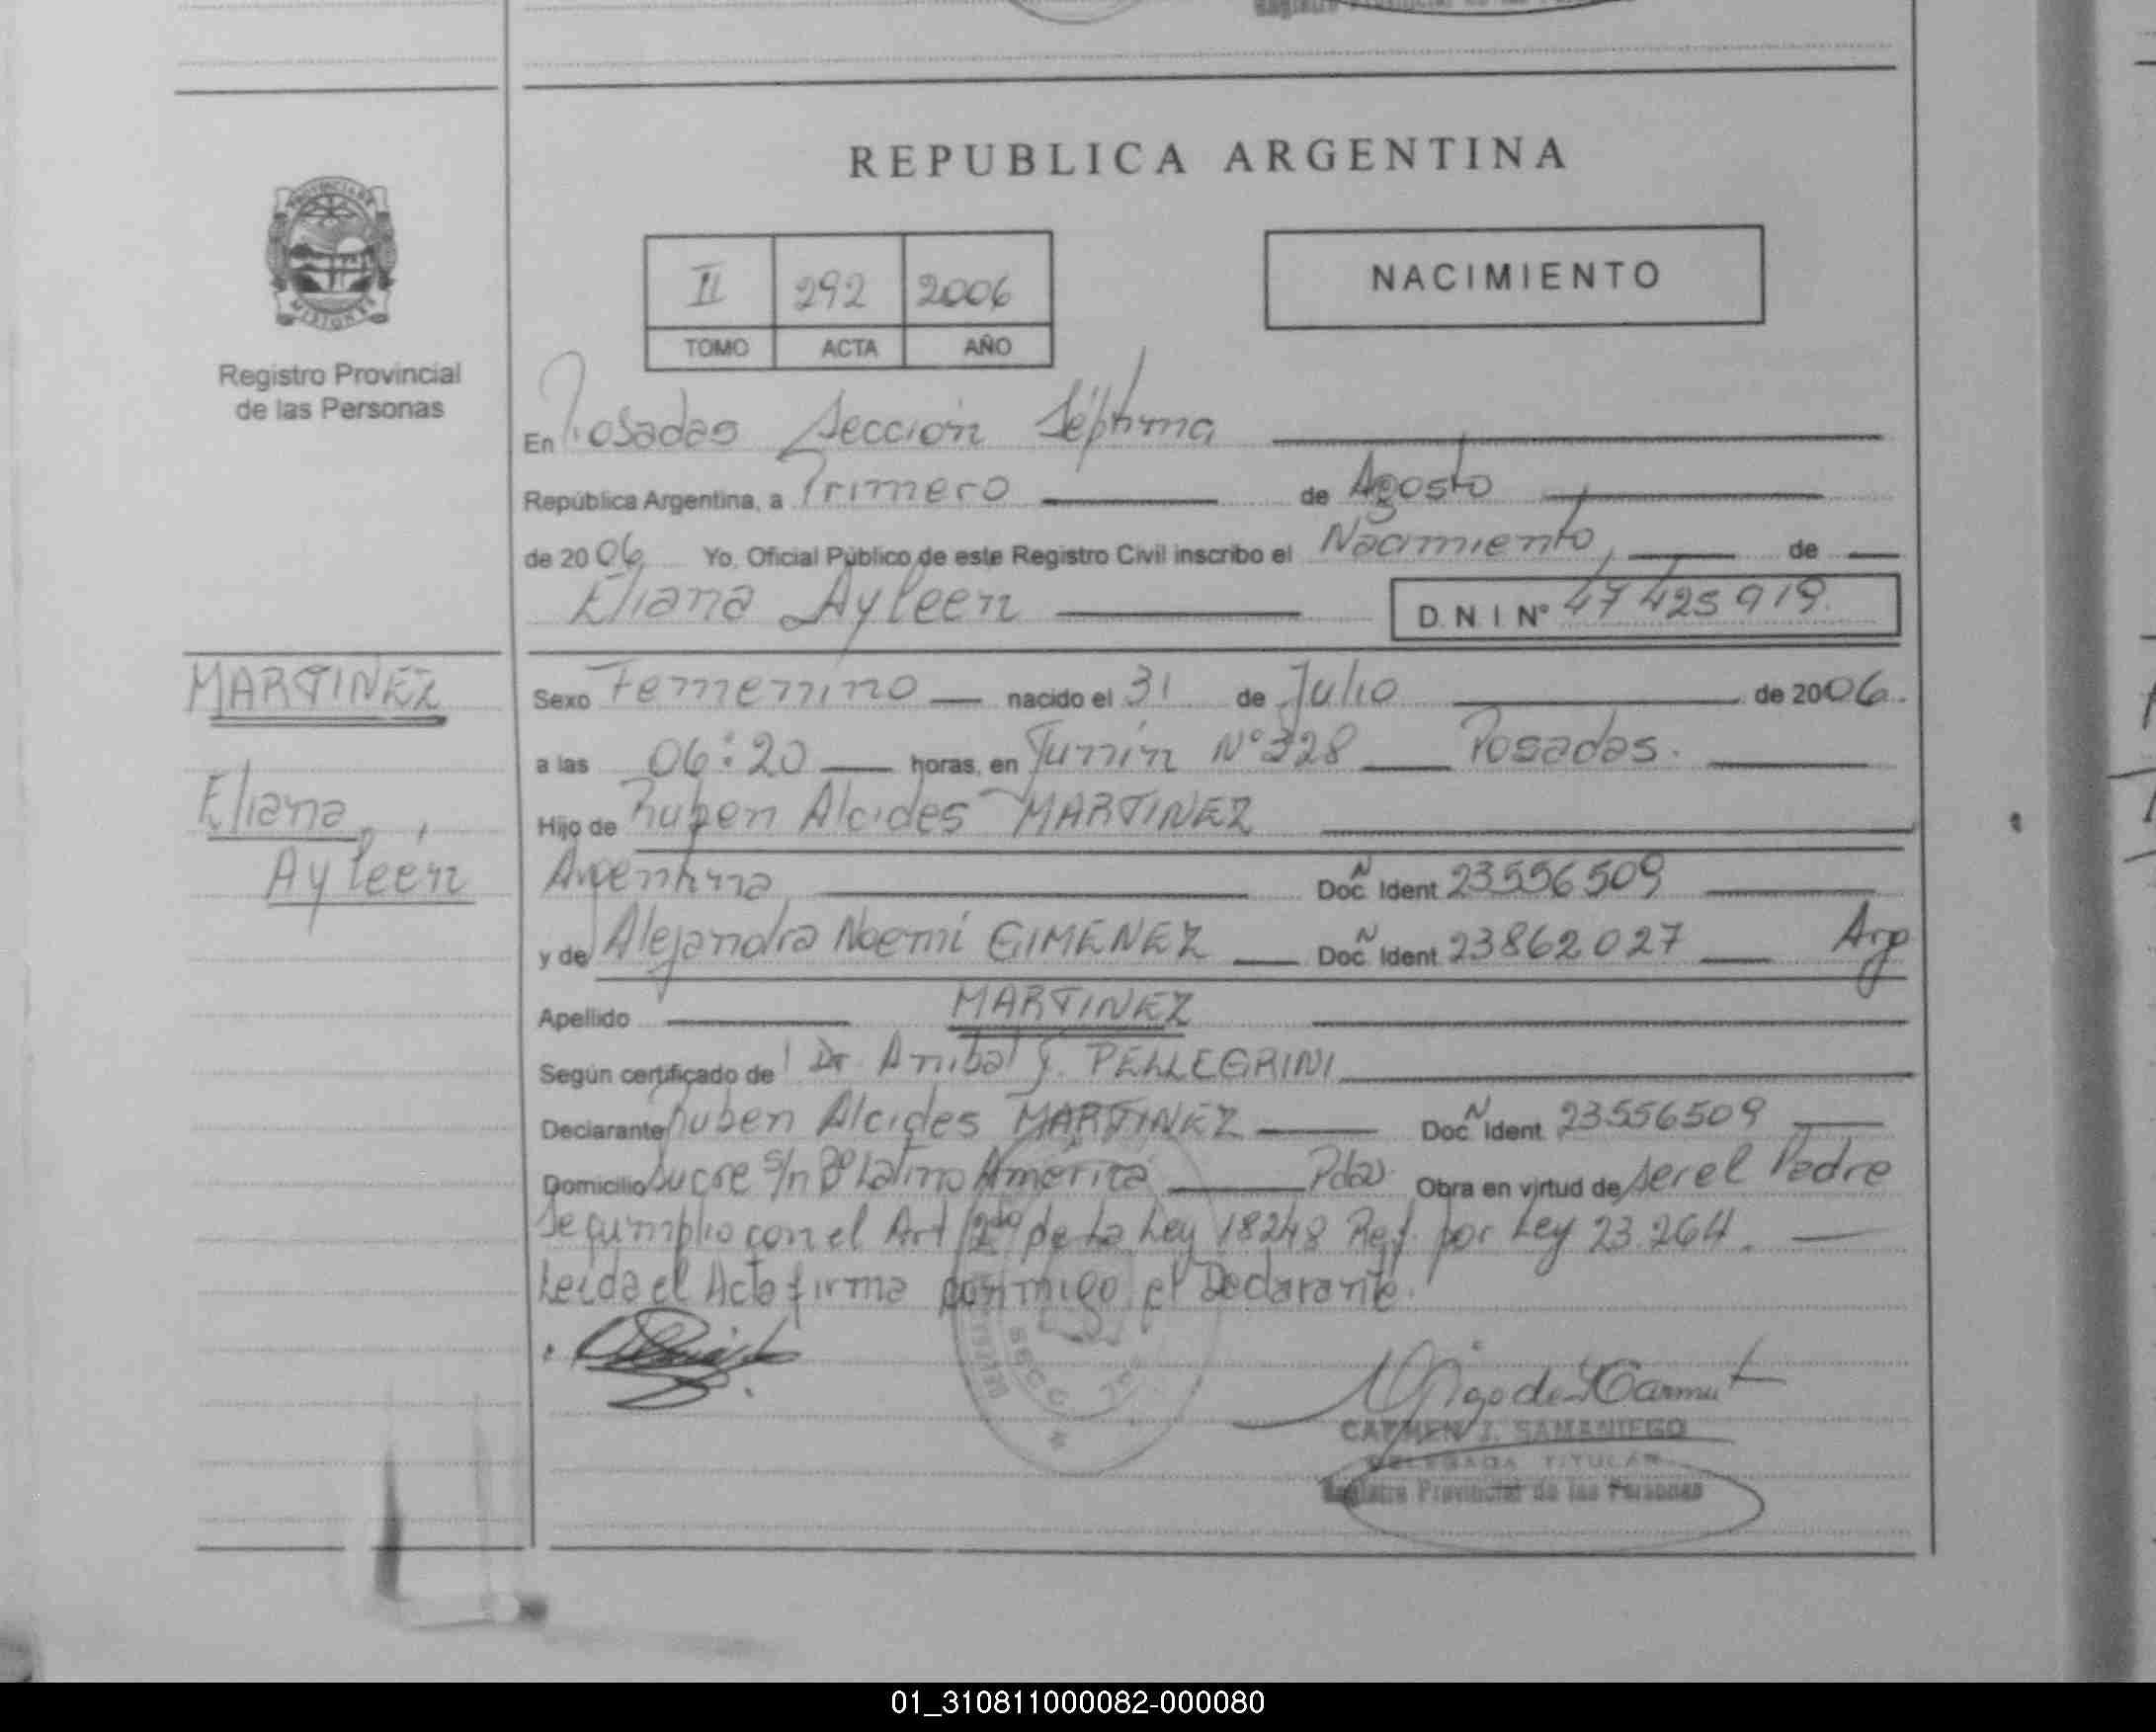 REPUBLICA ARGENTINA
PROVINCIA DE
MISIONES
Registro Provincial
de las Personas
II 292 2006
TOMO ACTA AÑO
NACIMIENTO
En Posadas Sección Séptima
República Argentina, a Primero de Agosto
de 2006 Yo, Oficial Público de este Registro Civil inscribo el Nacimiento, de
Eliana Ayleen D.N.I Nº 47425919
MARTINEZ
Eliana
Ayleen
Sexo Femenino nacido el 31 de Julio de 2006.
a las 06:20 horas, en Junín Nº 328 Posadas.
Hijo de Ruben Alcides MARTINEZ
Argentina Doc. N Ident 23556509
y de Alejandra Noemí GIMENEZ Doc. N Ident 23862027 Arg
Apellido MARTINEZ
Según certificado de Dr Anibal J. PELLEGRINI
Declarante Ruben Alcides MARTINEZ Doc. N Ident 23556509
Domicilio Sucre s/n Bº Latino América Pdas Obra en virtud de ser el Padre
Se cumplio con el Art 2do de La Ley 18248 Ref. por Ley 23.264.
Leida el Acta firma conmigo el Declarante.
CARMEN J. SAMANIEGO
DELEGADA TITULAR
Registro Provincial de las Personas
01_310811000082-000080